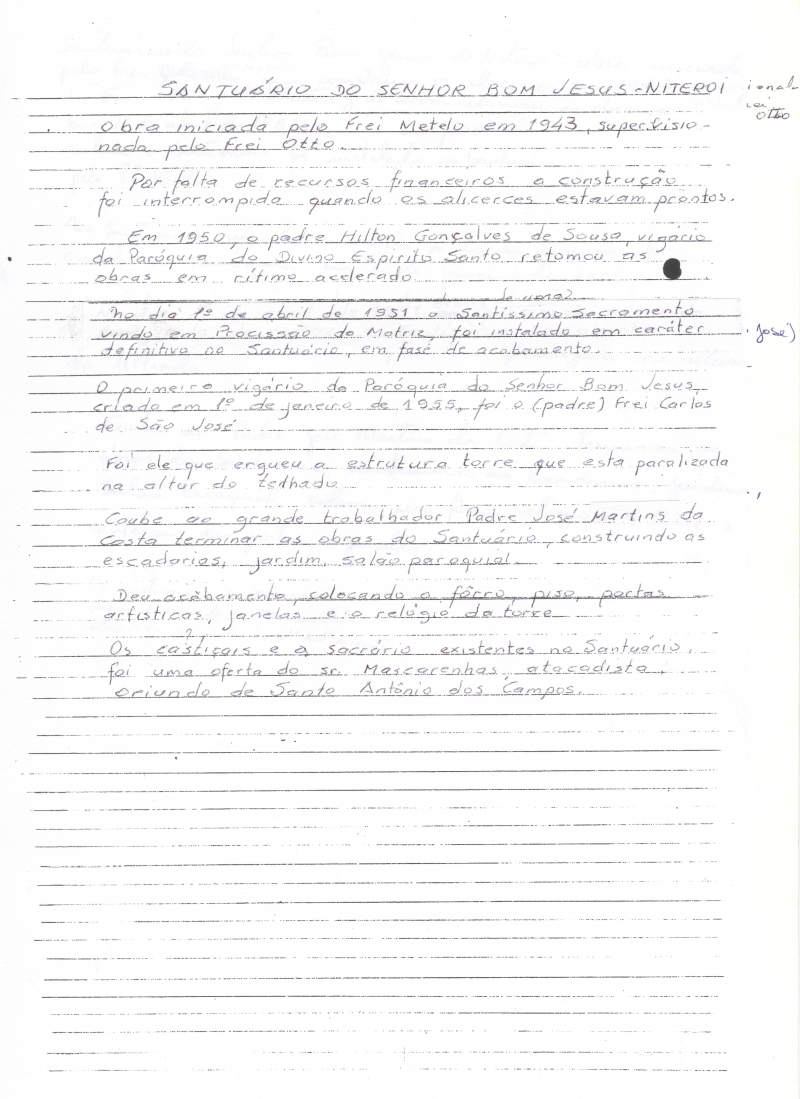 SANTUÁRIO DO SENHOR BOM JESUS - NITEROI
Otto
Obra iniciada pelo Frei Metelo em 1943, supervisio-
nada pelo Frei Otto.
Por falta de recursos financeiros a construção
foi interrompida quando os alicerces estavam prontos.
Em 1950, o padre Hilton Gonçalves de Sousa, vigário
da Paróquia do Divino Espirito Santo retomou as
obras em rítimo acelerado
No dia 1º de abril de 1951 o Santíssimo Sacramento
vindo em Procissão da Matriz, foi instalado em caráter
José)
definitivo no Santuário, em fase de acabamento.
O primeiro vigário da Paróquia do Senhor Bom Jesus,
criada em 1º de janeiro de 1955, foi o (padre) Frei Carlos
de São José
Foi ele que ergueu a estrutura torre que esta paralizada
na altur do telhado
Coube ao grande trabalhador Padre José Martins da
Costa terminar as obras do Santuário, construindo as
escadarias, jardim, salão paroquial.
Deu acabamento, colocando o fôrro, piso, portas
artísticas, janelas e o relógio da torre
?
Os castiçais e o sacrário existentes no Santuário,
foi uma oferta do sr. Mascarenhas, atacadista,
oriundo de Santo Antônio dos Campos.